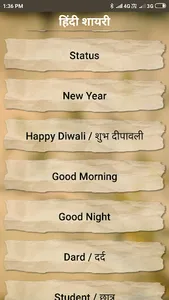 1:36 PM 4G 3G
हिंदी शायरी
Status
New Year
Happy Diwali / शुभ दीपावली
Good Morning
Good Night
Dard / दर्द
Student / छात्र